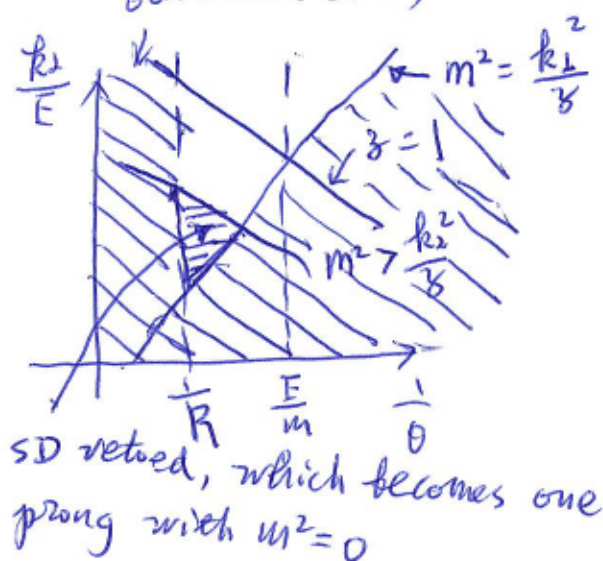 k⊥/E
m² = k⊥²/z
z = 1
m² > k⊥²/z
1/R E/m 1/θ
SD vetoed, which becomes one
prong with m² = 0